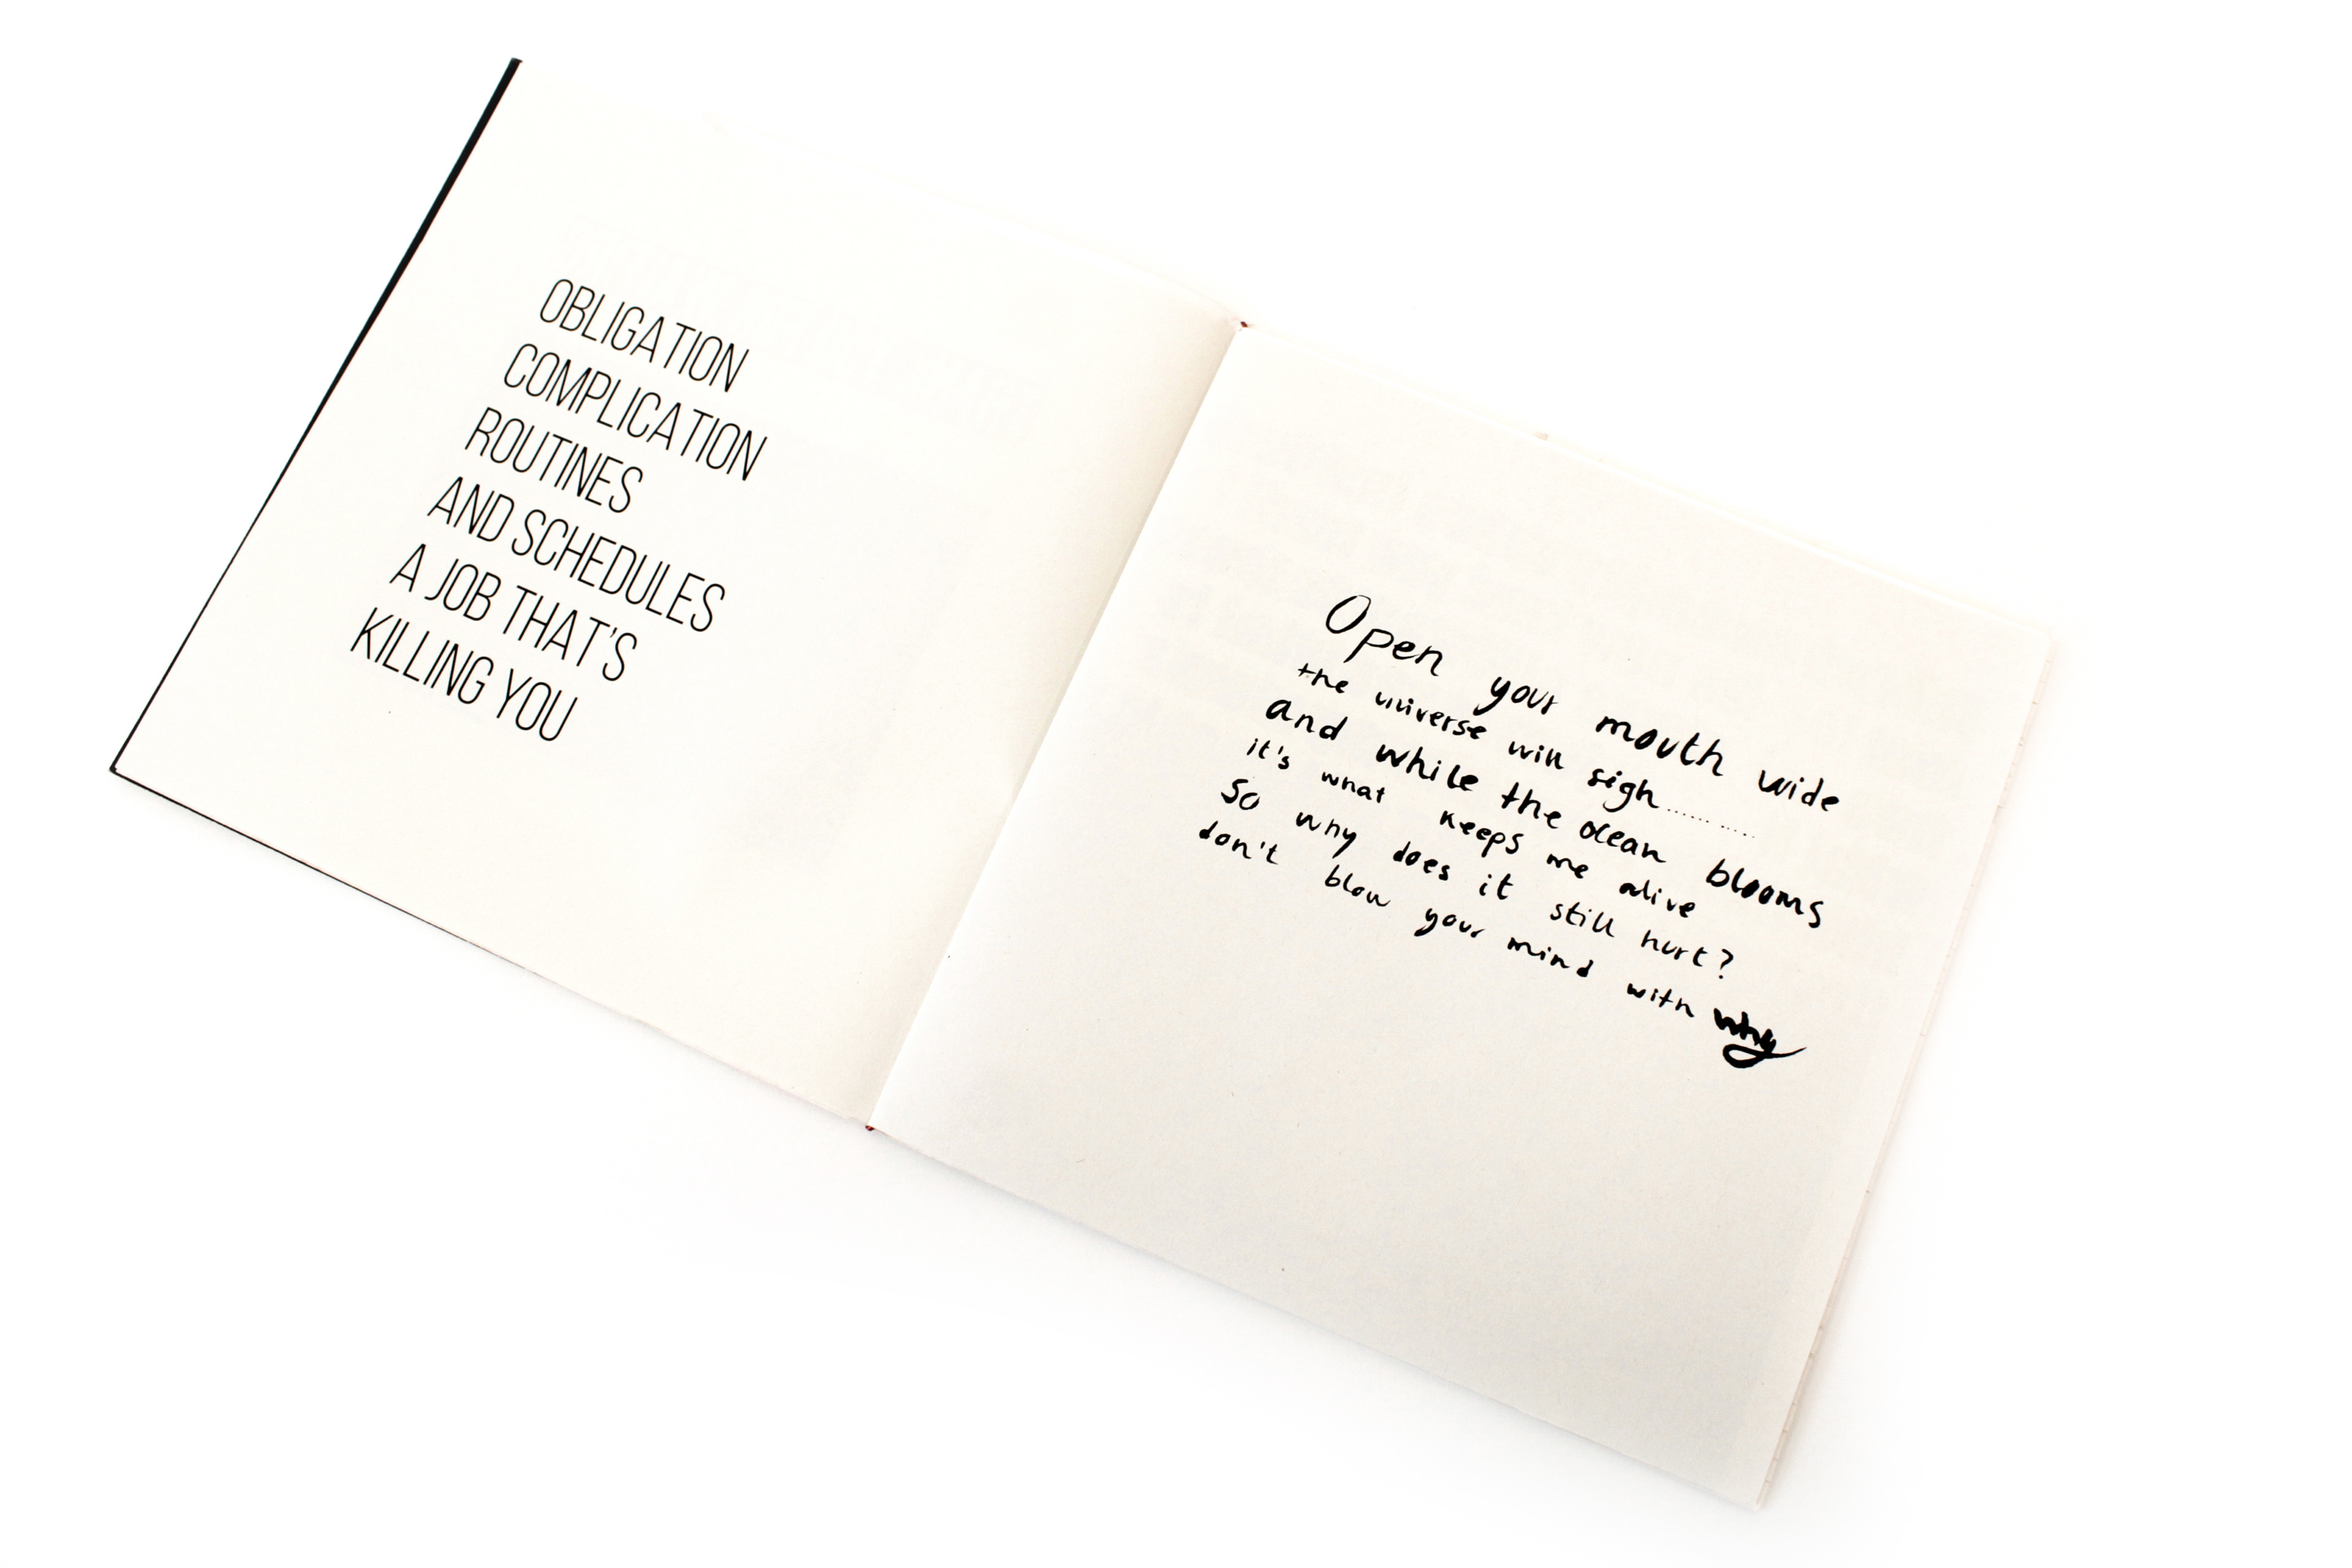 OBLIGATION
COMPLICATION
ROUTINES
AND SCHEDULES
A JOB THAT'S
KILLING YOU
Open your mouth wide
the universe will sigh..........
and while the ocean blooms
it's what keeps me alive
So why does it still hurt?
don't blow your mind with why